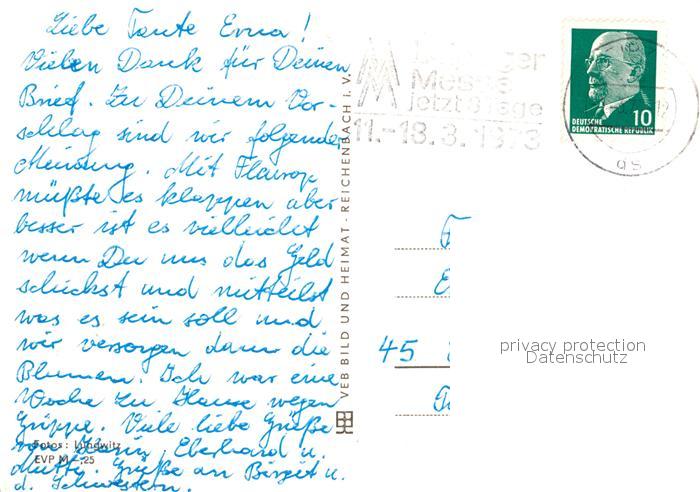 Liebe Tante Erna!
Vielen Dank für Deinen
Brief. Zu Deinem Vor-
schlag sind wir folgender
Meinung. Mit Fleurop
müßte es klappen aber
besser ist es vielleicht
wenn Du uns das Geld
schickst und mitteilst
was es sein soll und
wir versorgen dann die
Blumen. Ich war eine
Woche zu Hause wegen
Grippe. Viele liebe Grüße
Karin, Eberhard u.
Mutti. Grüße an Birgit u.
d. Schwestern.
Fotos: Lundwitz
EVP M -,25
VEB BILD UND HEIMAT · REICHENBACH I. V.
Messe
jetzt 8 Tage
11.-18.3.1973
DEUTSCHE
DEMOKRATISCHE REPUBLIK
10
45
privacy protection
Datenschutz